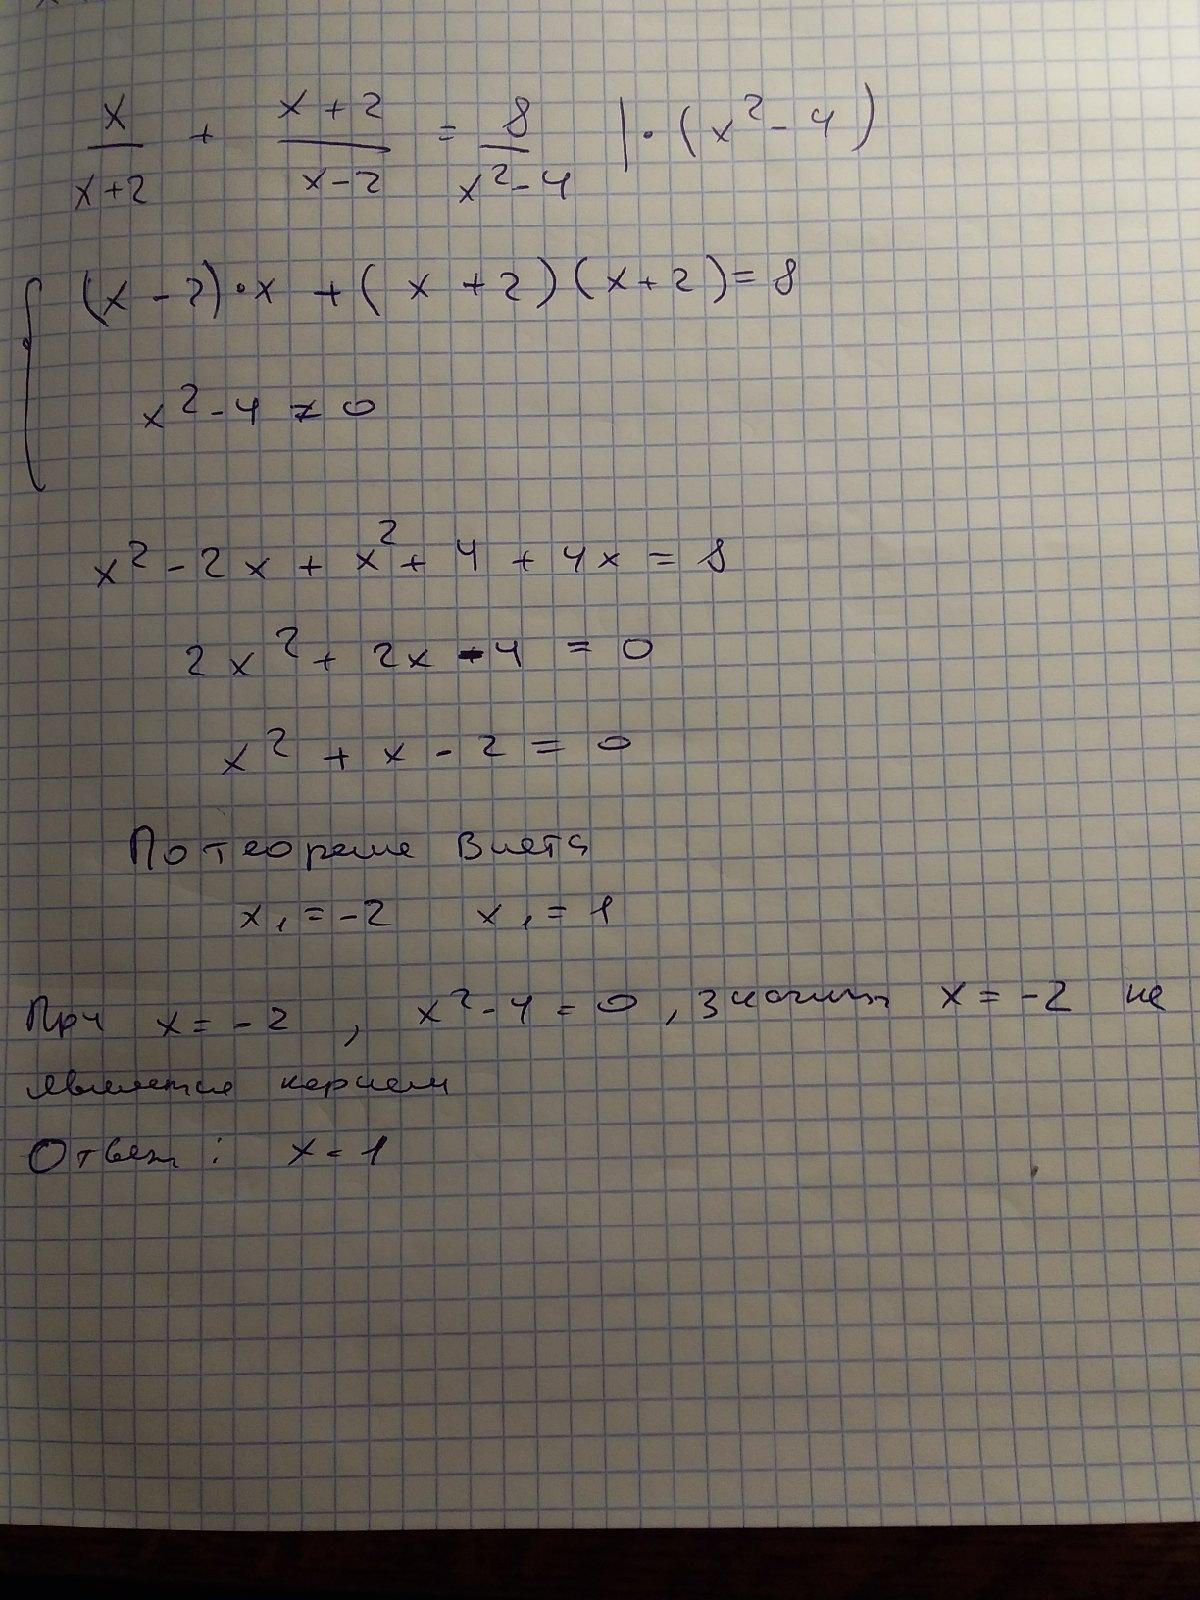 x/(x+2) + (x+2)/(x-2) = 8/(x²-4) | · (x²-4)
{ (x-2)·x + (x+2)(x+2) = 8
x²-4 ≠ 0
x² - 2x + x² + 4 + 4x = 8
2x² + 2x - 4 = 0
x² + x - 2 = 0
По теореме Виета
x₁ = -2 x₁ = 1
При x = -2 , x²-4 = 0 , значит x = -2 не
является корнем
Ответ : x = 1